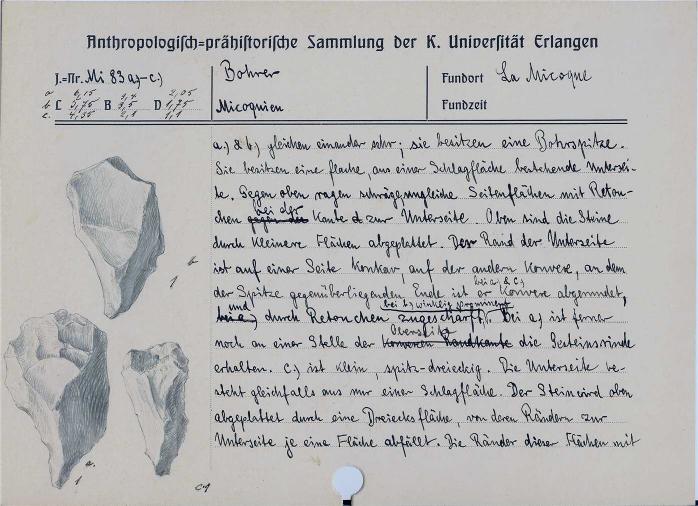 Anthropologisch=prähistorische Sammlung der K. Universität Erlangen
J.=Nr. Mi 83 a)-c)
Bohrer
Fundort La Micoque
a 6,15 3,4 2,05
b L 5,75 B 3,5 D 1,75
c. 4,35 2,1 1,1
Micoquien
Fundzeit
a.) & b.) gleichen einander sehr; sie besitzen eine Bohrspitze.
Sie besitzen eine flache, aus einer Schlagfläche bestehende Untersei-
te. Gegen oben ragen schräge, ungleiche Seitenflächen mit Retou-
bei der
chen gegen die Kante d zur Unterseite. Oben sind die Steine
durch kleinere Flächen abgeplattet. Der Rand der Unterseite
ist auf einer Seite konkav, auf der andern konvex, an dem
bei a) & c)
der Spitze gegenüberliegenden Ende ist er konvex abgerundet,
und bei b) winklig
bei a) durch Retouchen zugeschärft. Bei a) ist ferner
Oberseite
noch an einer Stelle der konvexen Randkante die Gesteinsrinde
erhalten. c.) ist klein, spitz-dreieckig. Die Unterseite be-
steht gleichfalls aus nur einer Schlagfläche. Der Stein wird oben
abgeplattet durch eine Dreiecksfläche, von deren Rändern zur
Unterseite je eine Fläche abfällt. Die Ränder dieser Flächen mit
1 b
1 a.
c 1